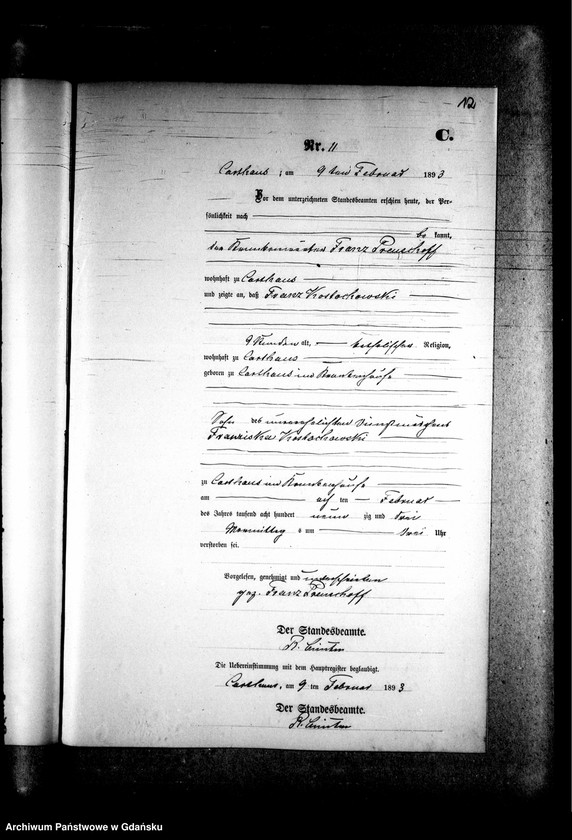 12
C.
Nr. 11
Carthaus, am 9 ten Februar 1893
Vor dem unterzeichneten Standesbeamten erschien heute, der Per-
sönlichkeit nach
be kannt,
der Krankenwärter Franz Preuschoff
wohnhaft zu Carthaus
und zeigte an, daß Franz Kostochowski
9 Stunden alt, katholischer Religion,
wohnhaft zu Carthaus
geboren zu Carthaus im Krankenhause
Sohn der unverehelichten Dienstmagd
Franziska Kostochowski
zu Carthaus im Krankenhause
am acht ten Februar
des Jahres tausend acht hundert neun zig und drei
Vormittags um drei Uhr
verstorben sei.
Vorgelesen, genehmigt und unterschrieben
gez. Franz Preuschoff
Der Standesbeamte.
Die Uebereinstimmung mit dem Hauptregister beglaubigt.
Carthaus, am 9 ten Februar 1893
Der Standesbeamte.
Archiwum Państwowe w Gdańsku